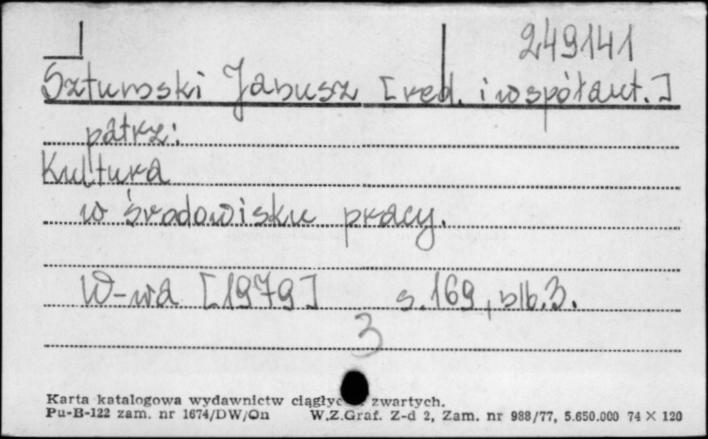 249141
Szturmski Janusz [red. i współaut.]
patrz:
Kultura
w środowisku pracy.
W-wa [1979] s. 169, nlb. 3.
3
Karta katalogowa wydawnictw ciągłych zwartych.
Pu-B-122 zam. nr 1674/DW/On W.Z.Graf. Z-d 2, Zam. nr 988/77, 5.650.000 74 × 120